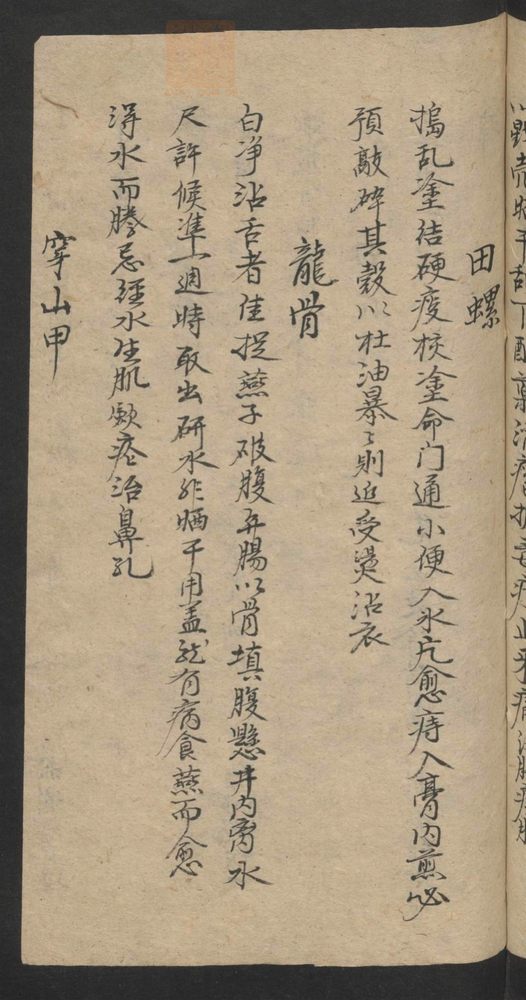 田螺
搗乱塗结硬疫核塗命门通小便入氷片愈痔入膏内煎必
預敲碎其殼以杜油暴〻則迫受燙沾衣
龍骨
白净沾舌者佳捉燕子破腹弃腸以骨填腹懸井内离水
尺許候準一週時取出研水飛晒干用盖龙有病食燕而愈
淂水而騰忌経水生肌歛疮治鼻
穿山甲